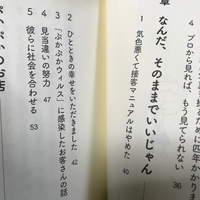 4 プロから見れば、もう見てられない 36
章 なんだ、そのままでいいじゃん
1 気色悪くて接客マニュアルはやめた 40
2 ひとときの幸せをいただきました 42
3 「ぷかぷかウィルス」に感染したお客さんの話
4 見当違いの努力 47
5 彼らに社会を合わせる 53
ぷかぷかのお店